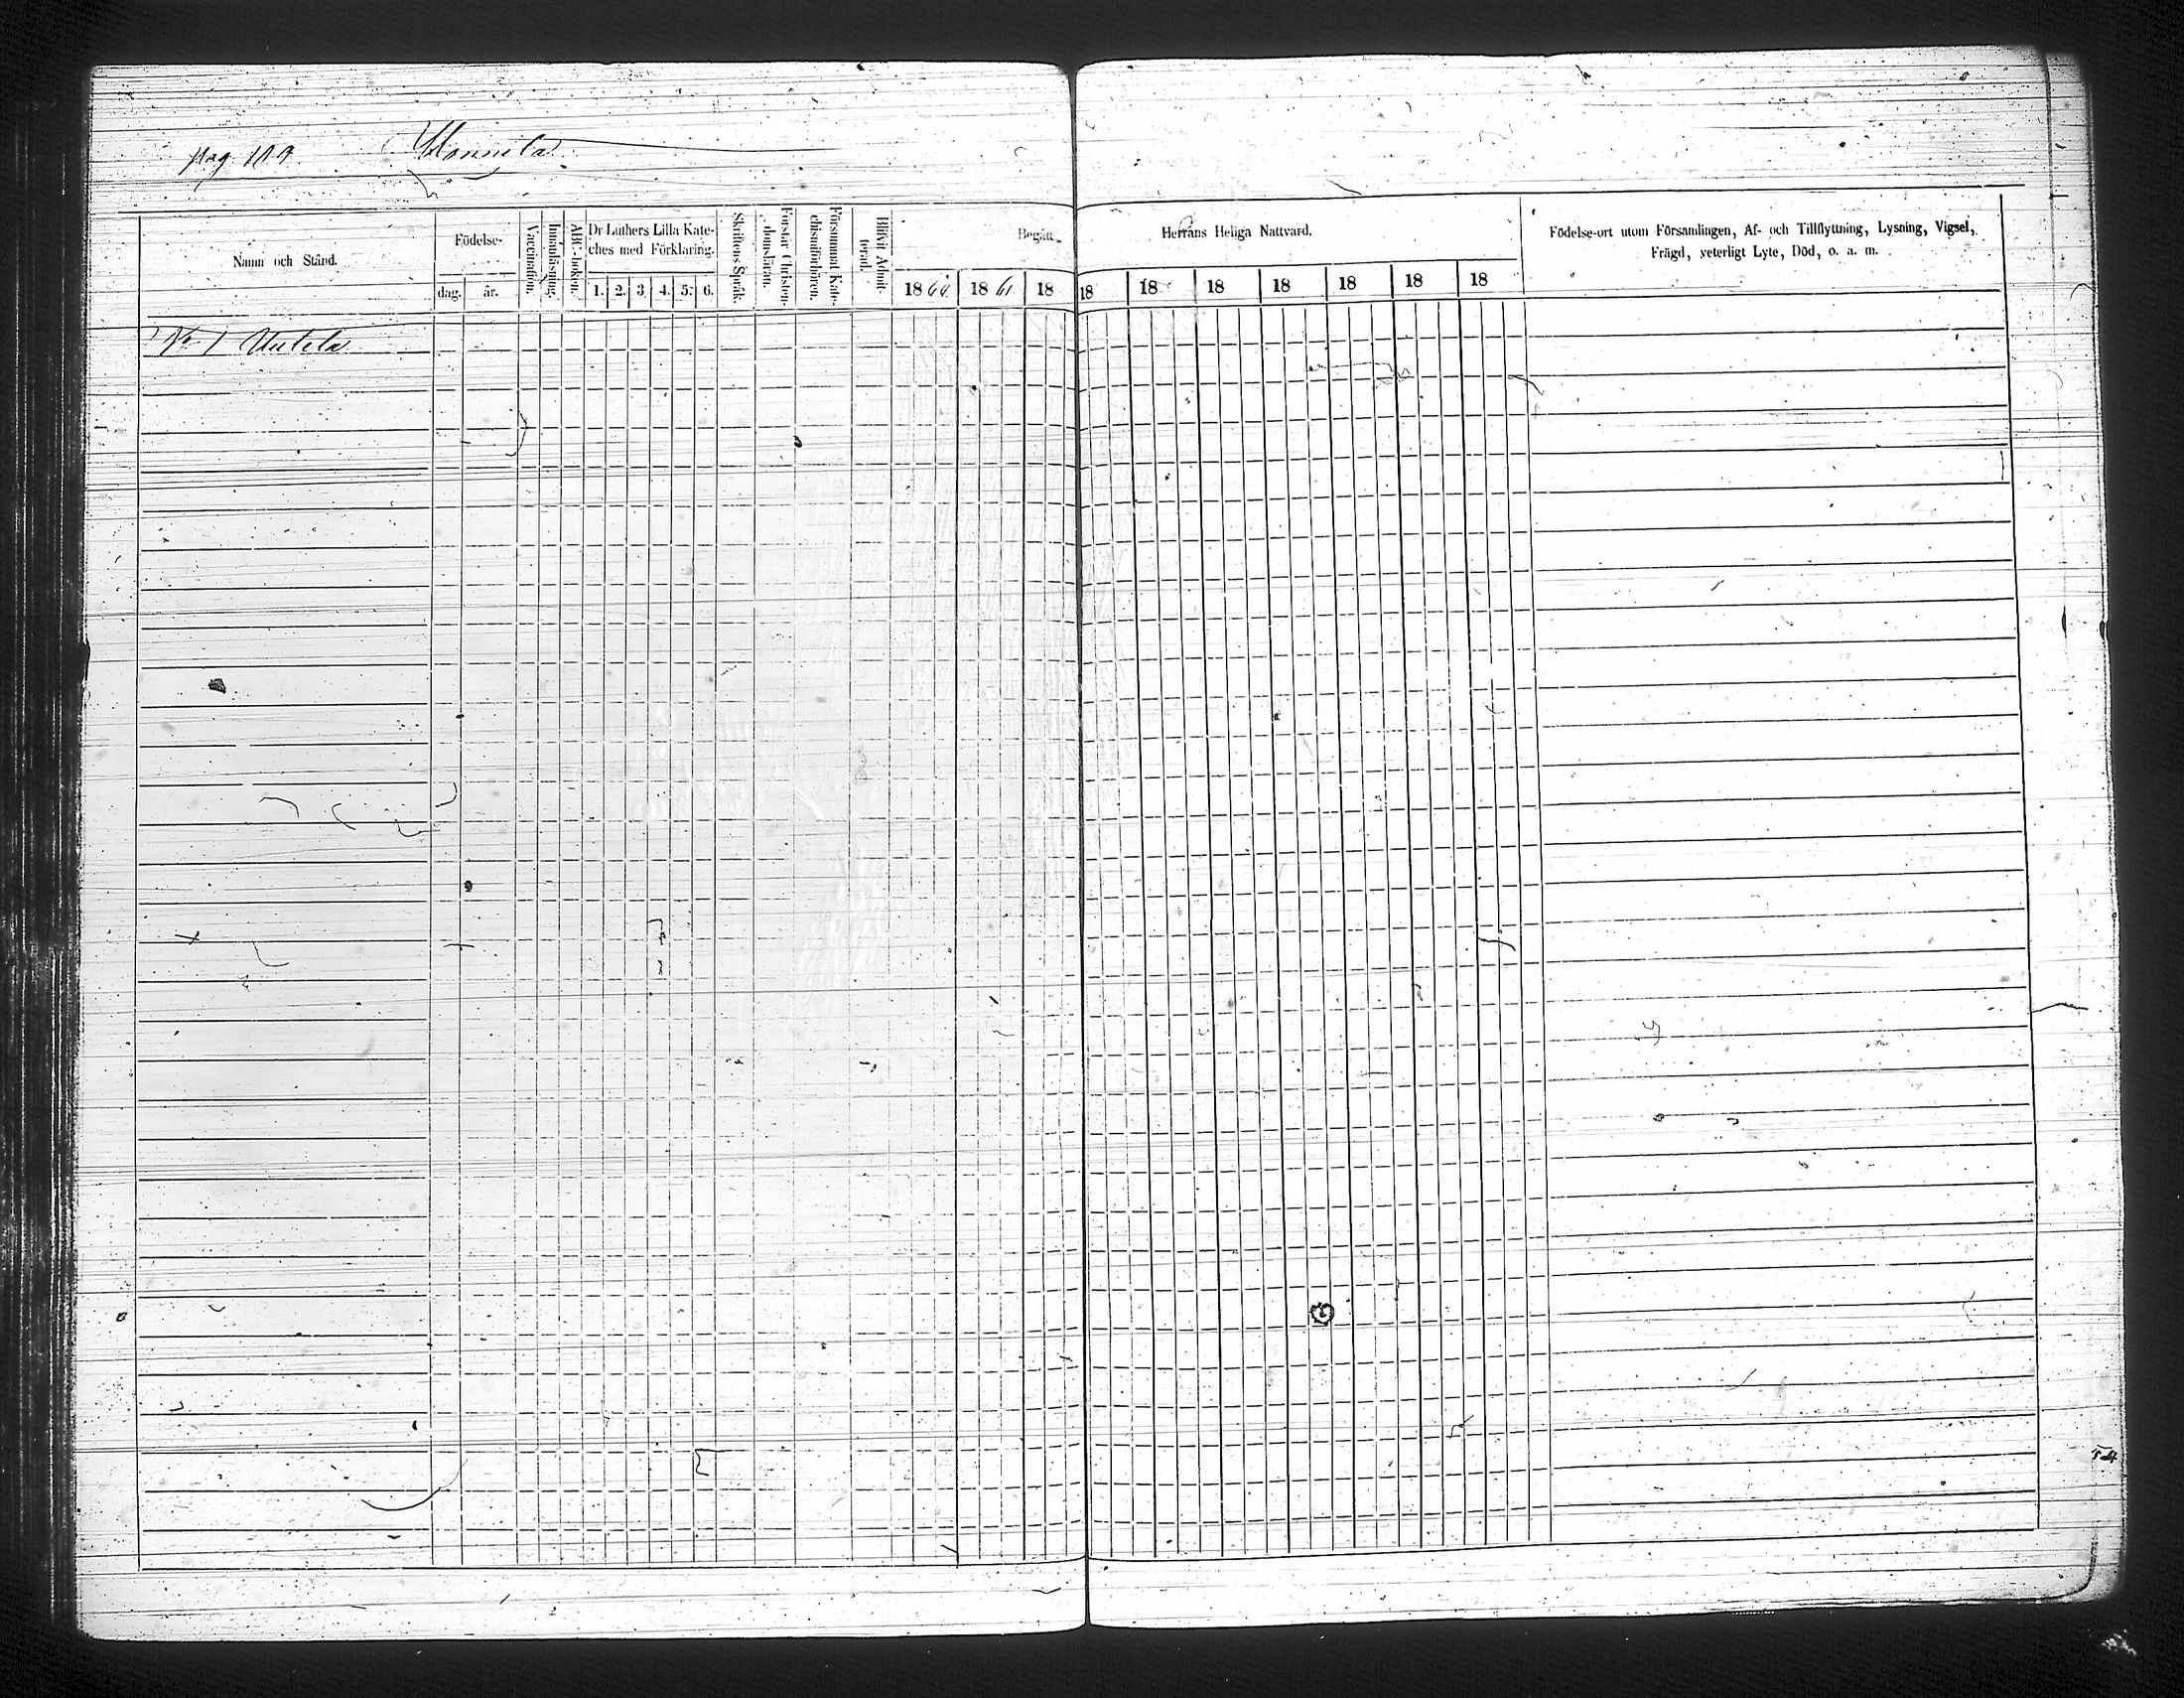 Pag 109 Monnila
Namn och Stånd.
Födelse-
dag. år.
Vaccination.
Innanläsning.
ABC-boken.
Dr Luthers Lilla Kate-
ches med Förklaring.
1. 2. 3. 4. 5. 6.
Skriftens Språk.
Förstår Christen-
domsläran.
Försummat Kate-
chismiförhören.
Blifvit Admit-
terad.
Begått Herrans Heliga Nattvard.
1860 1861 18 18 18 18 18 18 18 18
Födelse-ort utom Församlingen, Af- och Tillflyttning, Lysning, Vigsel,
Frägd, veterligt Lyte, Död, o. a. m.
No 1 Uutela